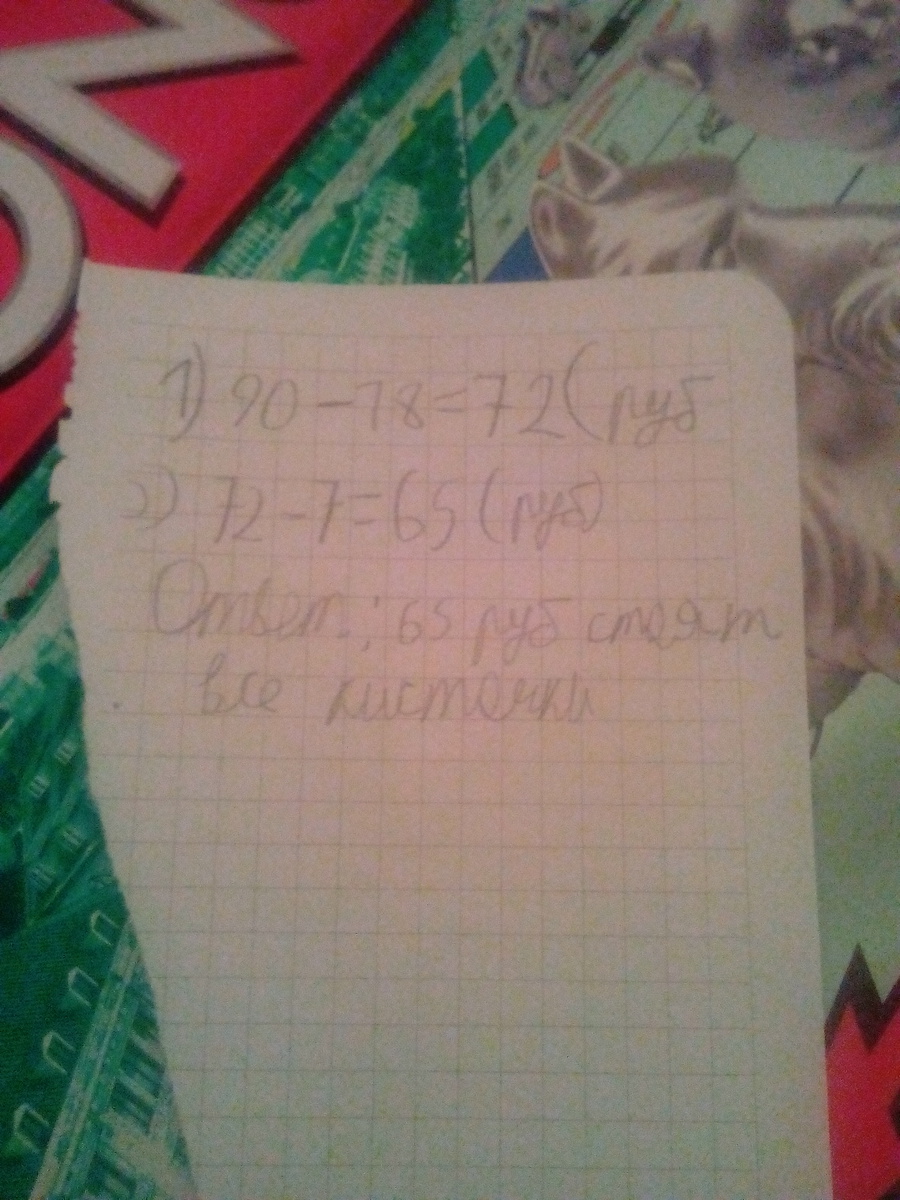 1) 90-18=72(руб
2) 72-7=65(руб)
Ответ.: 65 руб стоят
все кисточки